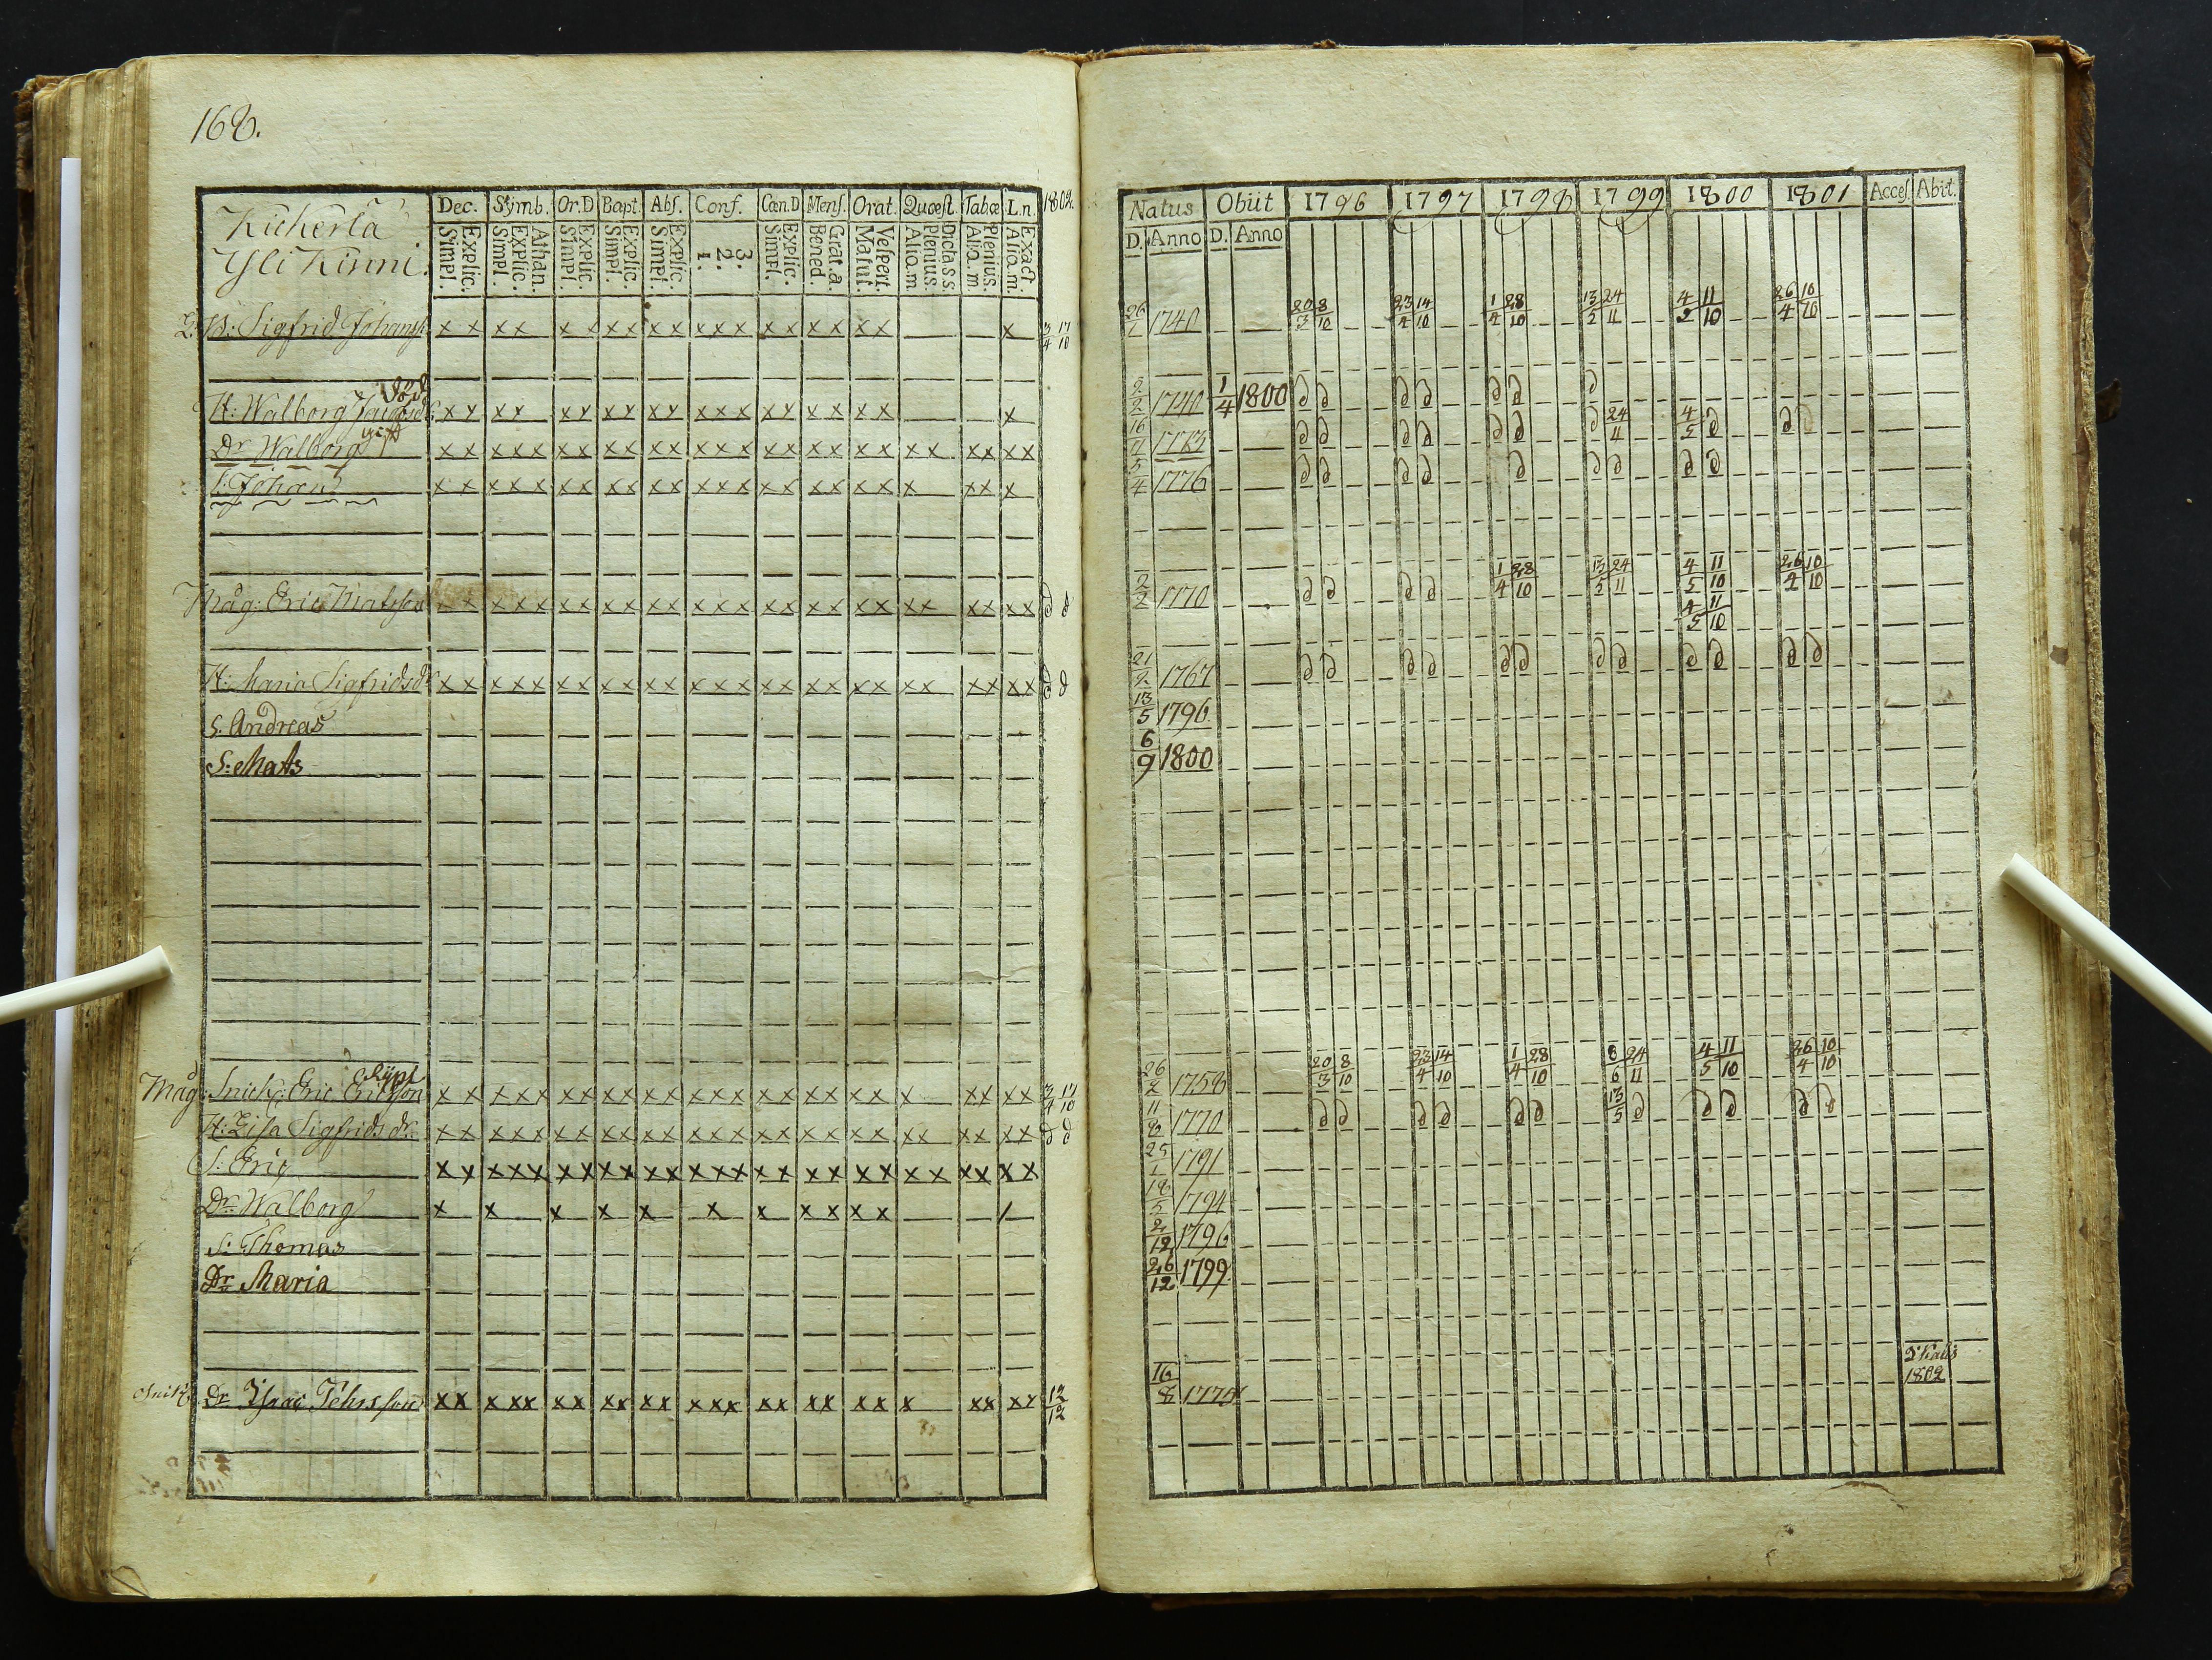 168.
Kickerlä
Yli Kinni.
Dec. Symb. Or.D Bapt. Abs. Conf. Cœn.D Mens. Orat. Quæst. Tabœ L.n. 1802.
Explic. Simpl. Athan. Explic. Simpl. Explic. Simpl. Explic. Simpl. Explic. Simpl. 3. 2. 1. Explic. Simpl. Grat.a. Bened. Vespert. Matut. Dicta s.s. Plenius. Aliq.m Plenius. Aliq.m Exact. Aliq.m.
B: Sigfrid Johanss x x x x x x x x x x x x x x x x x x x x x 3/4 17/10
död
H: Walborg x x x x x x x x x x x x x x x x x x x x x
gift
Dr Walborg x x x x x x x x x x x x x x x x x x x x x x x x x x
S: Johan x x x x x x x x x x x x x x x x x x x x x x x x x
Måg: Eric Matsson x x x x x x x x x x x x x x x x x x x x x x x x x x x ∂ ∂
H: Maria Sigfridsdr x x x x x x x x x x x x x x x x x x x x x x x x x x x ∂ ∂
S. Andreas
S: Mats
Måg: Snick: Eric Ericsson x x x x x x x x x x x x x x x x x x x x x x x x x x 3/4 17/10
H: Lisa Sigfridsdr x x x x x x x x x x x x x x x x x x x x x x x x x x x ∂ ∂
S: Eric x x x x x x x x x x x x x x x x x x x x x x x x x x x
Dr Walborg x x x x x x x x x x x /
S: Thomas
Dr Maria
Snick: Dr Isaac Pehrsson x x x x x x x x x x x x x x x x x x x x x x x x x x 12/12
Natus Obiit 1796 1797 1798 1799 1800 1801 Acces. Abit.
D. Anno D. Anno
26/1 1740 20/3 8/10 23/4 14/10 1/4 28/10 13/5 24/11 4/5 11/10 26/4 10/10
2/2 1740 1/4 1800 ∂ ∂ ∂ ∂ ∂ ∂ ∂
16/11 ∂ ∂ ∂ ∂ ∂ ∂ ∂ 24/11 4/5 ∂ ∂ ∂
5/4 1776 ∂ ∂ ∂ ∂ ∂ ∂ ∂ ∂ ∂
2/2 1770 ∂ ∂ ∂ ∂ 1/4 28/10 13/5 24/11 4/5 11/10 26/4 10/10
4/5 11/10
21/2 1767 ∂ ∂ ∂ ∂ ∂ ∂ ∂ ∂ ∂ ∂ ∂ ∂
13/5 1796.
6/9 1800
26/2 1758 20/3 8/10 23/4 14/10 1/4 28/10 6/6 24/11 4/5 11/10 26/4 10/10
11/2 1770 ∂ ∂ ∂ ∂ ∂ ∂ 13/5 ∂ ∂ ∂ ∂ ∂
25/1 1791
18/5 1794
2/12 1796
26/12 1799.
16/8 1802